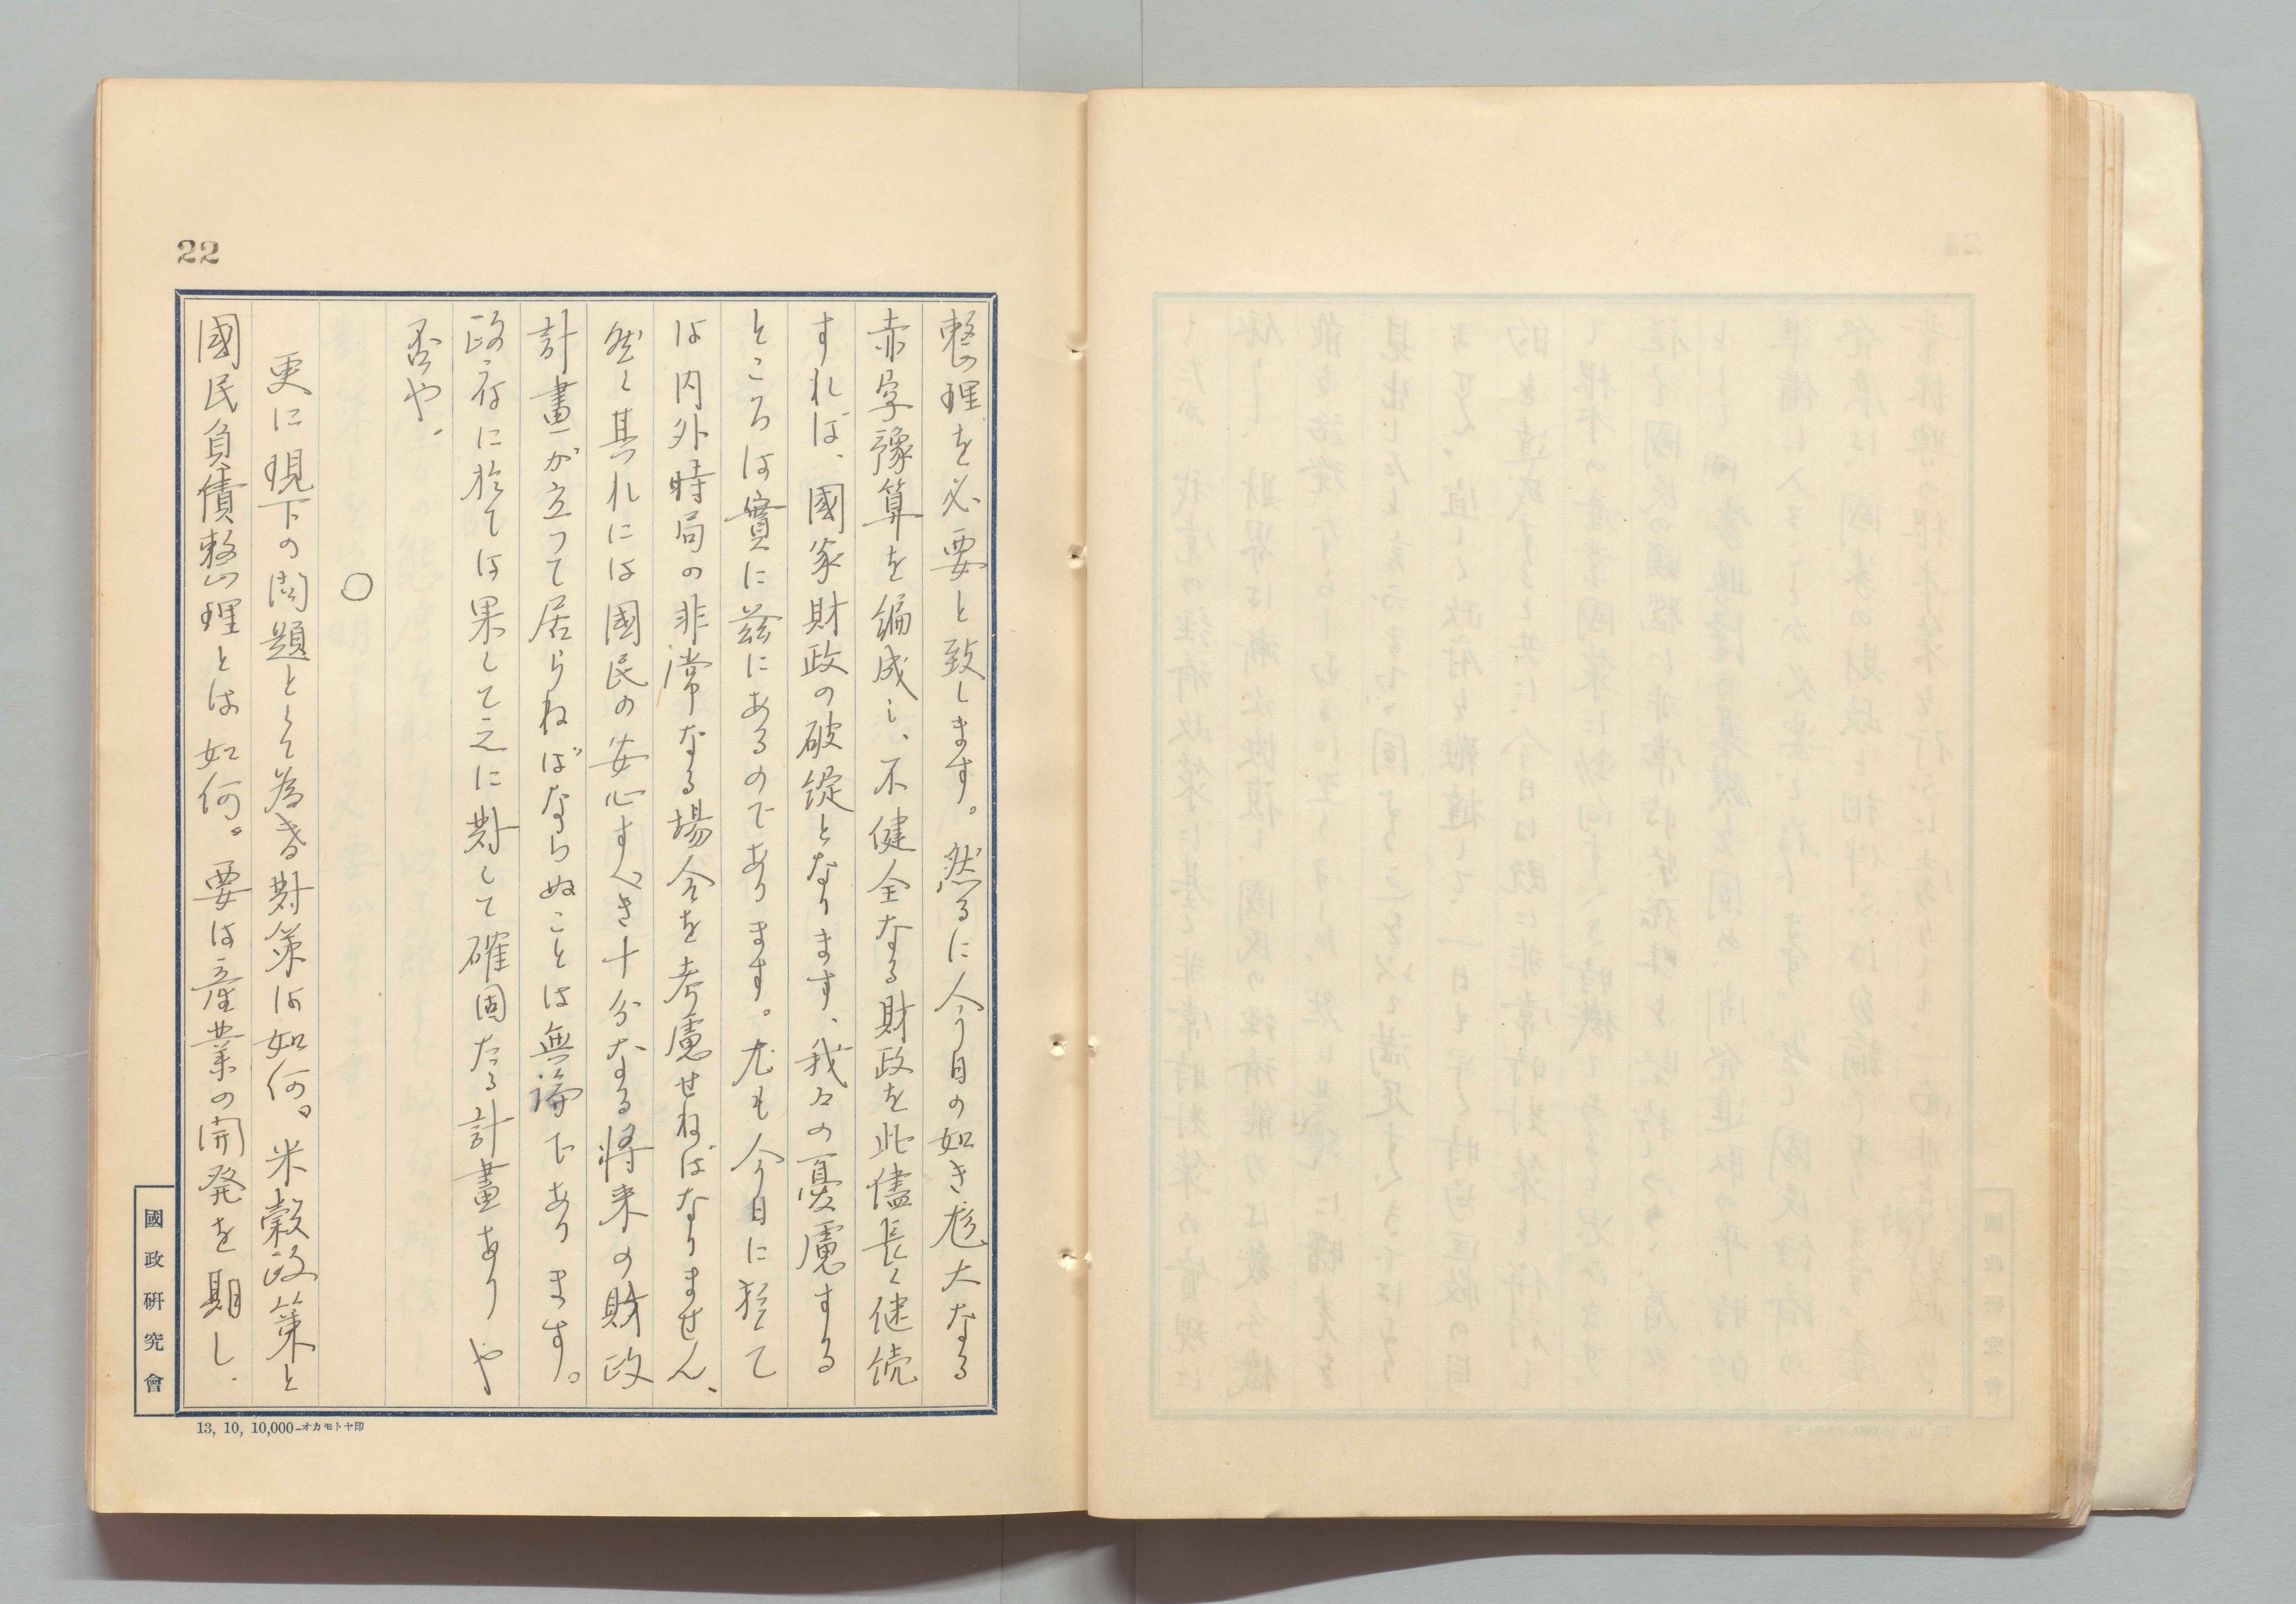 22
整理を必要と致します。然るに今日の如き尨大なる
赤字豫算を編成し、不健全なる財政を此儘長く継続
すれば、國家財政の破綻となります、我々の憂慮する
ところは實に茲にあるのであります。尤も今日に於て
は内外時局の非常なる場合を考慮せねばなりません、
然し其れには國民の安心すべき十分なる将来の財政
計畫が立つて居らねばならぬことは無論であります。
政府に於ては果して之に對して確固たる計畫ありや
否や.
○
更に現下の問題として為る對策は如何。米穀政策と
國民負債整理とは如何。要は産業の開発を期し.
國政研究會
13, 10, 10,000—オカモトヤ印